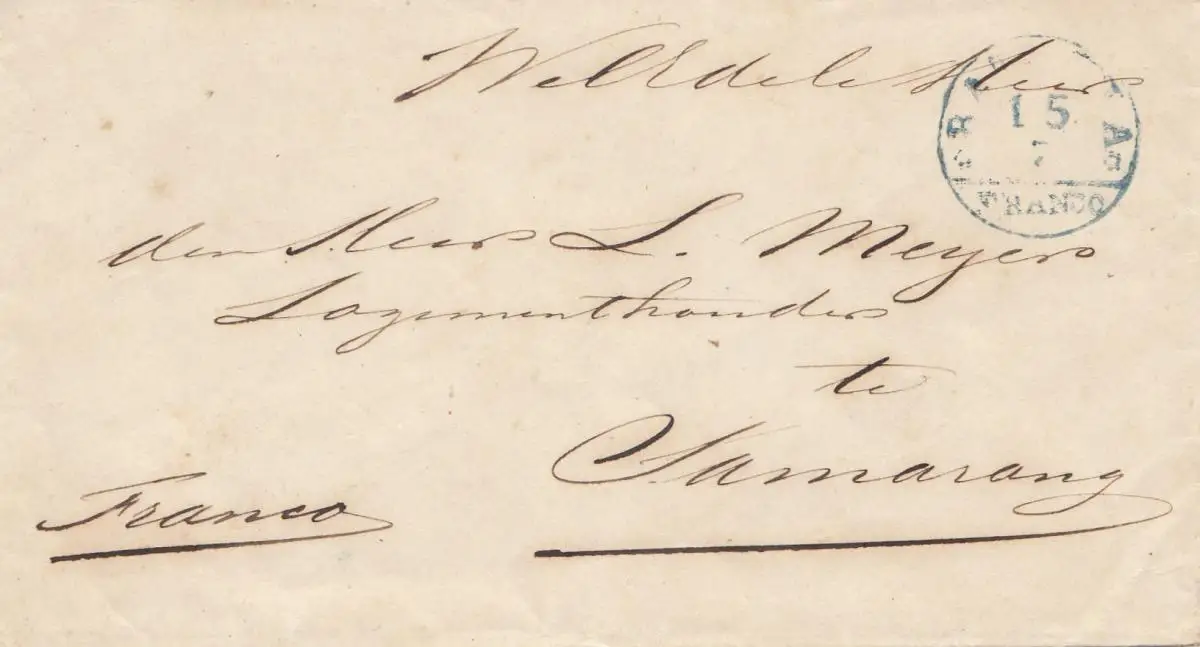 WelEdele Heer
15
7
FRANCO
den Heer L. Meyer
Logementhouder
te
Samarang
Franco